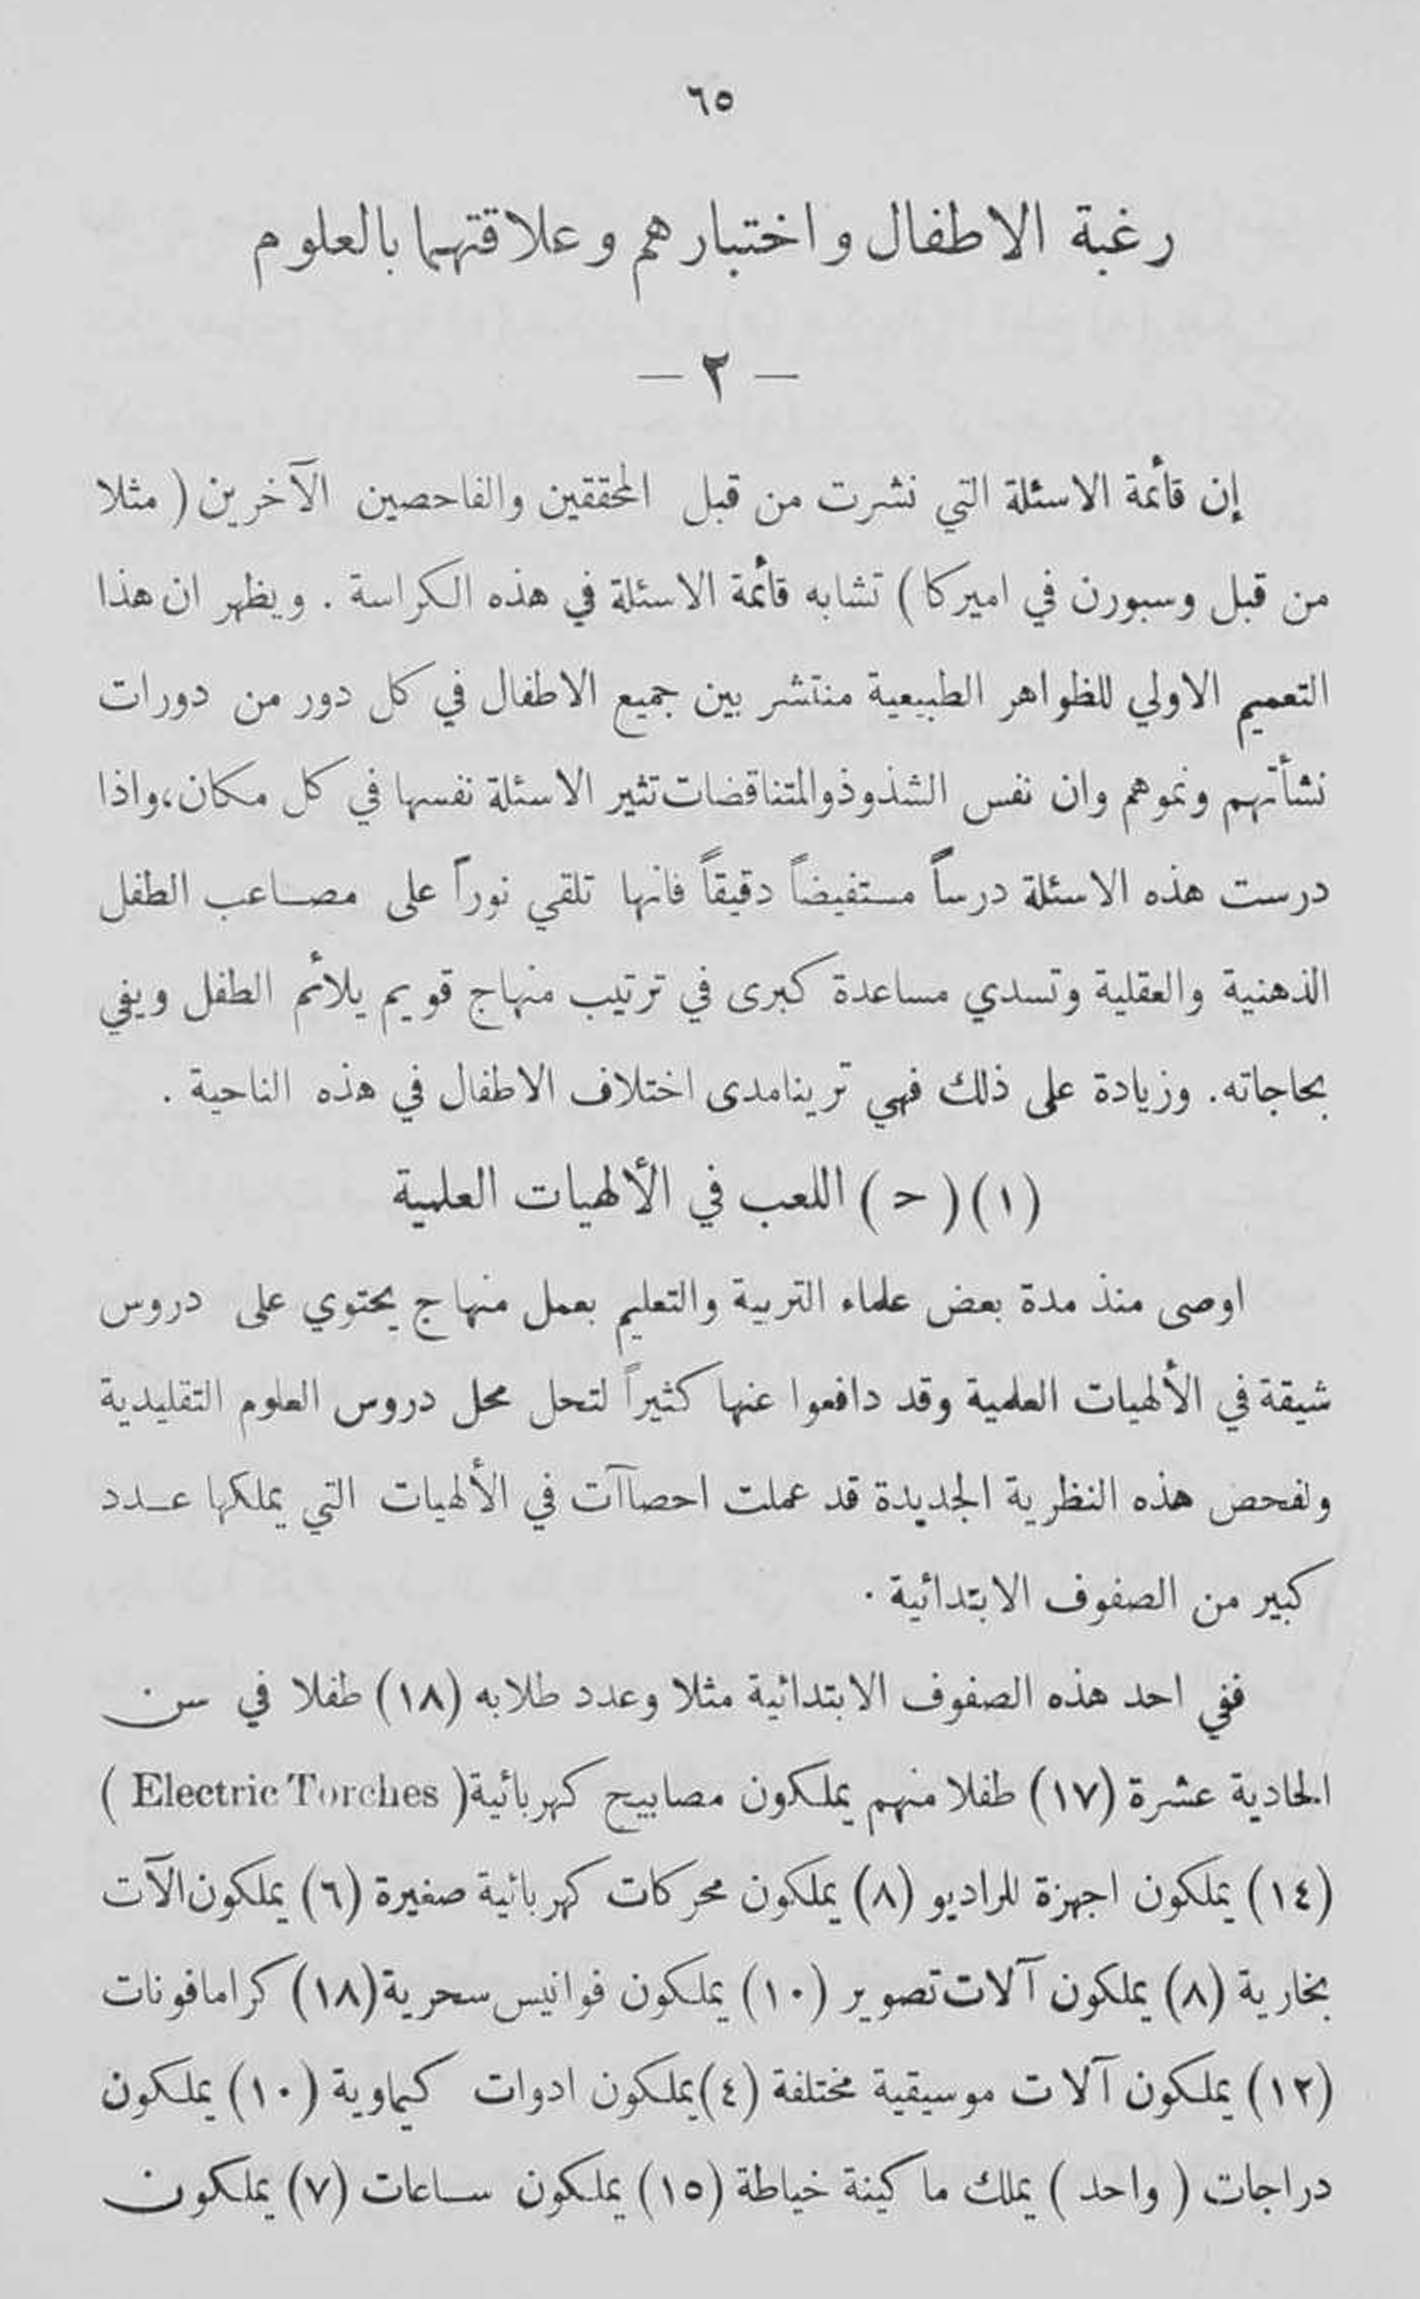 ٦٥
رغبة الاطفال واختبارهم وعلاقتهما بالعلوم
— ٢ —
إن قائمة الاسئلة التي نشرت من قبل المحققين والفاحصين الآخرين ( مثلا
من قبل وسبورن في اميركا ) تشابه قائمة الاسئلة في هذه الكراسة . ويظهر ان هذا
التعميم الاولي للظواهر الطبيعية منتشر بين جميع الاطفال في كل دور من دورات
نشأتهم ونموهم وان نفس الشذوذ والمتناقضات تثير الاسئلة نفسها في كل مكان، واذا
درست هذه الاسئلة درساً مستفيضاً دقيقاً فانها تلقي نوراً على مصاعب الطفل
الذهنية والعقلية وتسدي مساعدة كبرى في ترتيب منهاج قويم يلائم الطفل ويفي
بحاجاته. وزيادة على ذلك فهي ترينا مدى اختلاف الاطفال في هذه الناحية .
(١) ( ح ) اللعب في الألهيات العلمية
اوصى منذ مدة بعض علماء التربية والتعليم بعمل منهاج يحتوي على دروس
شيقة في الألهيات العلمية وقد دافعوا عنها كثيراً لتحل محل دروس العلوم التقليدية
ولفحص هذه النظرية الجديدة قد عملت احصاآت في الألهيات التي يملكها عدد
كبير من الصفوف الابتدائية .
ففي احد هذه الصفوف الابتدائية مثلا وعدد طلابه (١٨) طفلا في سن
الحادية عشرة (١٧) طفلا منهم يملكون مصابيح كهربائية ( Electric Torches )
(١٤) يملكون اجهزة للراديو (٨) يملكون محركات كهربائية صغيرة (٦) يملكون الآت
بخارية (٨) يملكون آلات تصوير (١٠) يملكون فوانيس سحرية (١٨) كرامافونات
(١٢) يملكون آلات موسيقية مختلفة (٤) يملكون ادوات كيماوية (١٠) يملكون
دراجات ( واحد ) يملك ماكينة خياطة (١٥) يملكون ساعات (٧) يملكون